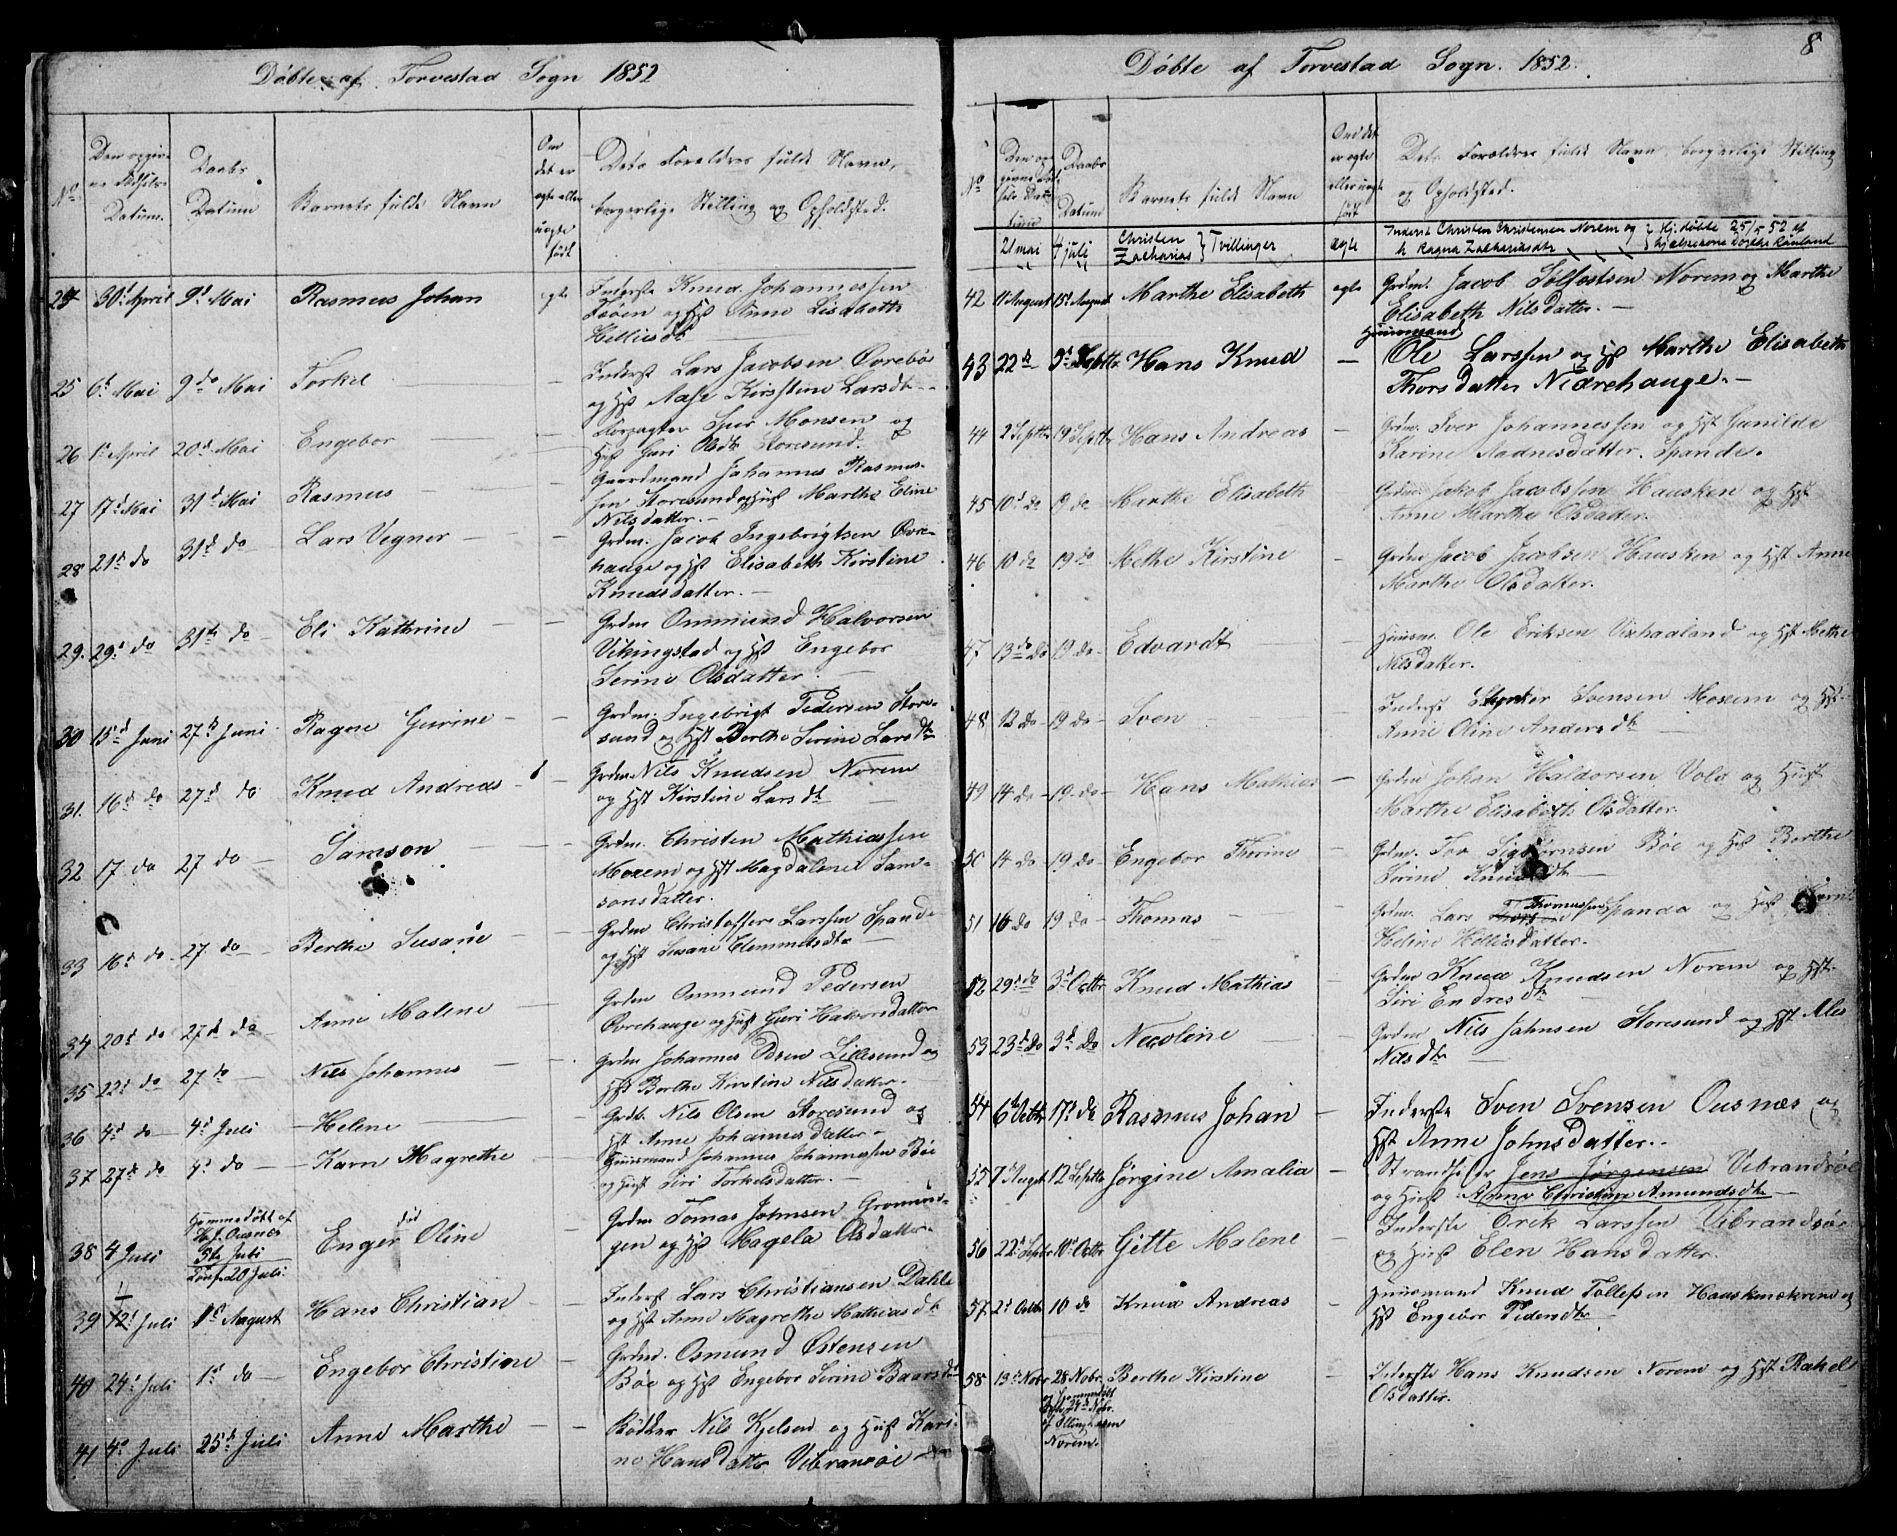 Döbte af Torvestad Sogn 1852
No.
Datum.
Daabs
Datum
Barnets fulde Navn
Om
det er
ægte eller
uægte
født
Dets Foreldres fulde Navn,
borgerlige Stilling og Opholdsted.
24 30t April 9d Mai Rasmus Johan egte Inderste Knud Johannessen
og Hst Anne Lisabeth
25 6t Mai 9de Mai Torkel — Inderst Lars Jacobsen Øvrebø
og Hst Aase Kirstine Larsdtr
26 1t April 20d Mai Engebor — Monsen og
Hst Guri Olsdtr Storesund.
27 17d Mai 31d Mai Rasmus — Gaardmand Johannes Rasmus-
sen Storesund og Hust Marthe Eline
Nilsdatter.
28 21d do 31d do Lars Vegner — Grdm. Jacob Ingebrigtsen Øvre-
hauge og Hst Elisabeth Kirstine
Knudsdatter.
29. 29d do 31te do Eli Kathrine — Grdm Ommund Halvorsen
Vikingstad og Hst Engebor
Serine Olsdatter.
30 15d Juni 27d Juni Ragne Gurine — Grdm. Ingebrigt Pedersen Store-
sund og Hst Berthe Serine Larsdtr
31. 16d do 27d do Knud Andreas — Grdm. Nils Knudsen Norem
og Hst Kirstine Larsdtr
32 17 do 27 do Samson — Grdm. Christen Mathiassen
Moxem og Hst Magdalene Sam-
sonsdatter.
33 16d do 27. do Berthe Susane — Grdm Christoffer Larssen Spande
og Hst Susane Clemmetsdtr
34 20d do 27d do Anne Malene — Grdm Ommund Pedersen
Øvrehauge og Hust Guri Halvorsdatter
35 22d do 27 do Nils Johannes — Grdm Johannes Olsen Lillesund og
Hst Berthe Kirstine Nilsdatter.
36 4d do 4d Juli Helene — Grdb. Nils Olsen Storesund og
Hst Anne Johannesdatter
37 27d do 4d do Karn Magrethe — Huusmand Johannes Johannessen Bøe
og Hust Siri Torkelsdatter.
38 4 Juli Hjemmedøbt af
5te Juli
20 Juli.
død
Enger Oline Grdm. Tomas Johnsen Gronnin-
gen og Hst Magela Olsdatter
39 12t Juli 1st August Hans Christian — Inderst Lars Christiansen Dahle
og Hst Anne Magrethe Mathiasdtr
40 24d Juli 1d do Engebor Christine — Grdm. Osmund Ostensen
Bøe og Hst Engebor Serine Baarsdtr
41 4d Juli 25d Juli Anne Marthe — Bødker Nils Kjelsen og Hust Kari-
ne Hansdatter Vibrandsøe
Döbte af Torvestad Sogn. 1852. 8
No
Daabs
Datum
Barnets fulde Navn
Om det
er ægte
eller uægte
født
Dets Forældres fulde Navn, borgerlige Stilling
og Opholdsted.
21 mai 4 juli Christen
Zacharias } Tvillinger ægte Inderst Christen Christensen Norem og
h. Ragna Zachariasdtr } Hj. döbte 25/5 52 af
42 11 August 15d August Marthe Elisabeth egte Grdm. Jacob Solfestsen Norem og Marthe
Elisabeth Nilsdatter.
43 22d 9d Septbr Hans Knud — Huusmand
Ole Larssen og Hst Marthe Elisabeth
Thorsdatter Nedrehauge.
44 2 Septbr 19 Septbr Hans Andreas Grdm. Iver Johannessen og Hst Gunilde
Karine Aadnesdatter. Spande.
45 10d do 19 do Marthe Elisabeth Grdm. Jakob Jacobssen Hausken og Hst
Anne Marthe Olsdatter.
46 10 do 19 do Methe Kirstine — Grdm Jacob Jacobsen Hausken og Hst Anne
Marthe Olsdatter.
47 13 do 19 do Edvardt — Huusm. Ole Eriksen Vixhaaland og Hst Methe
Nilsdatter.
48 12 do 19 do Sven Inderst Svensen Moxem og Hst
Anne Oline Andersdtr
49 14 do 19 do Hans Mathias — Grdm Johan Haldorsen Vola og Hust
Marthe Elisabeth Olsdatter.
50 14 do 19 do Engebor Thorine — Grdm. Tor Bøe og Hst Berthe
Serine
51 16 do 19 do Thomas — Grdm. Lars Thomassen Spande og Hst
Heline Helliesdatter.
52 29d do 3d Octbr Knud Mathias — Grdm Knud Knudsen Norem og Hst.
Siri Endresdtr
53 23d do 3d do Nicoline — Grdm Nils Johnsen Storesund og Hst
Nilsdtr
54 6te Octbr 17d do Rasmus Johan — Inderste Sven Svensen Ousnæs og
Hst Anne Johnsdatter.
55 7 August 12 Septbr Jørgine Amalia — Strandsider Jens Jørgensen Vibrandsøe
og Hust Anne Christine Amundsdtr
56 22d Septbr 10d Octbr Gitte Malene — Inderste Erik Larssen Vibrandsøe
og Hust Elen Hansdatter.
57 2d Octbr 10 do Knud Andreas Huusmand Knud Tollefsen og
Hst Engebor Pedersdtr
58 19d Nobr 28 Nobr. Berthe Kirstine — Inderste Hans Knudsen Norem og Hst Rakel
Olsdatter.
Norem.